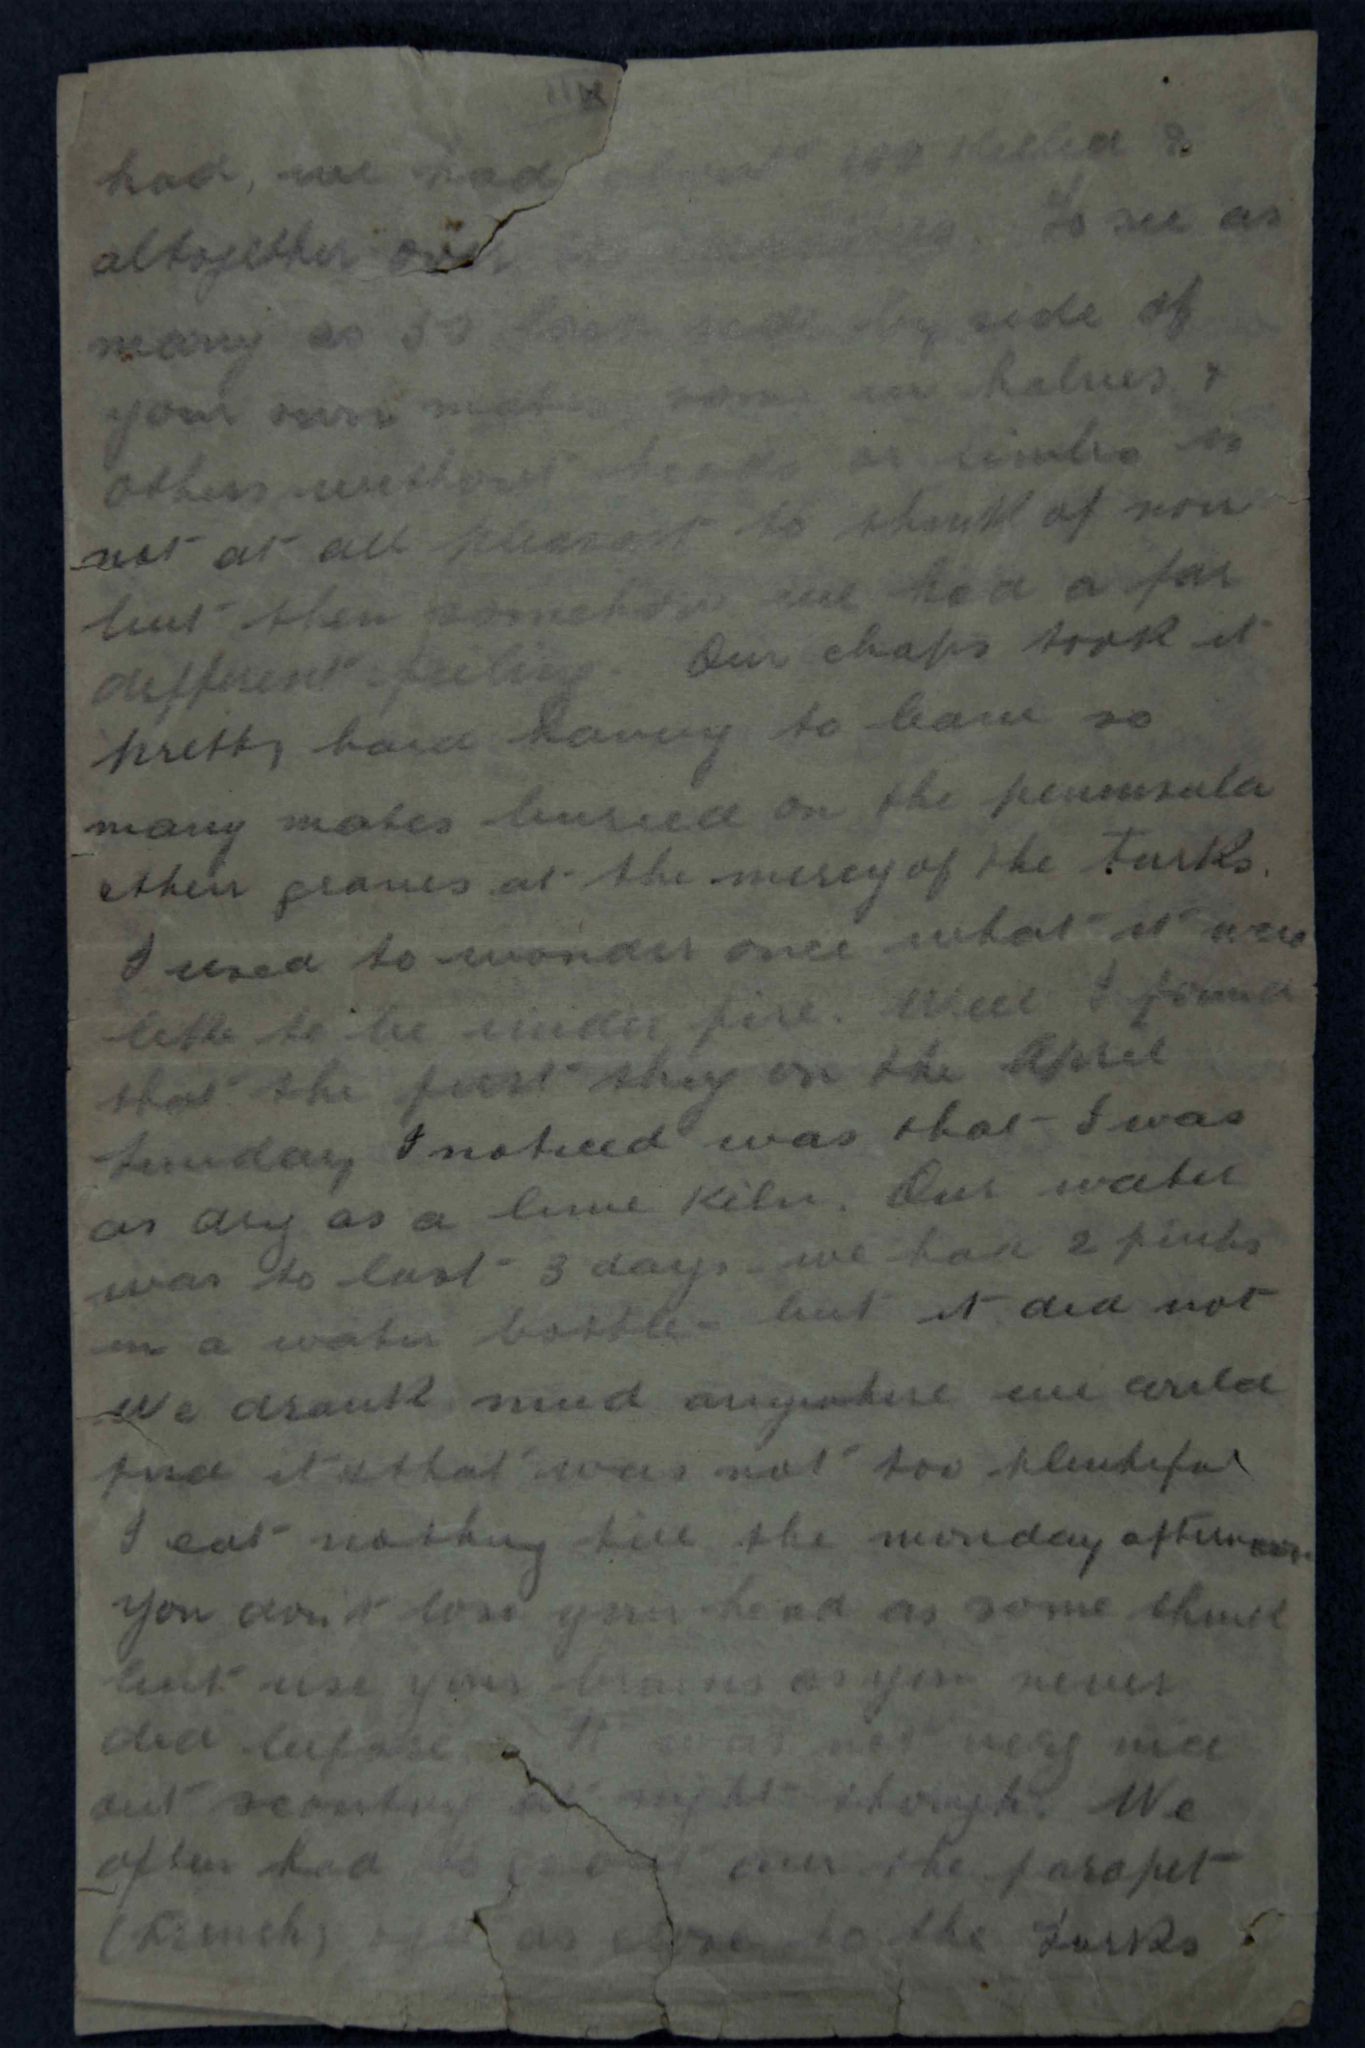 had, we had about killed &
altogether over To see as
many as 50 laid side by side of
your own mates some in halves &
others without heads or limbs is
not at all pleasant to think of now
but then somehow we had a far
different feeling. Our chaps took it
pretty hard having to leave so
many mates buried on the peninsula
their graves at the mercy of the Turks.
I used to wonder once what it was
like to be under fire. Well I found
that the first thing on the April
Sunday I noticed was that I was
as dry as a lime kiln. Our water
was to last 3 days - we had 2 pints
in a water bottle - but it did not
We drank mud anywhere we could
find it & that was not too plentiful
I eat nothing till the monday afternoon.
You don't lose your head as some think
but use your brains as you never
did before. It was not very nice
out scouting at night though. We
often had to go out over the parapet
(trench) get as close to the Turks